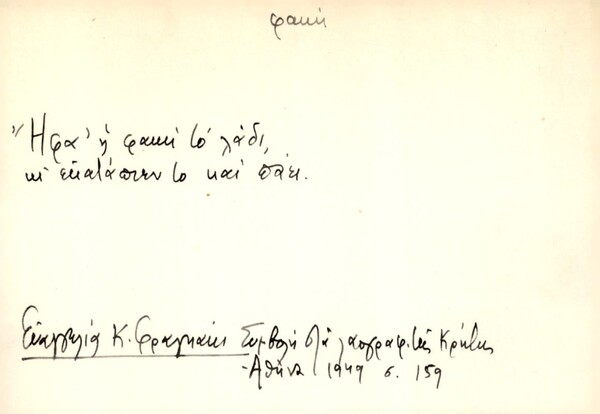 φακή
Ἤφα' ἡ φακή τὸ λάδι,
κι' ἐκατάπιεν το καί πάει.
Εὐαγγελία Κ. Φραγκάκι Συμβολή στά λαογραφ. τῆς Κρήτης
Ἀθήνα 1949 σ. 159